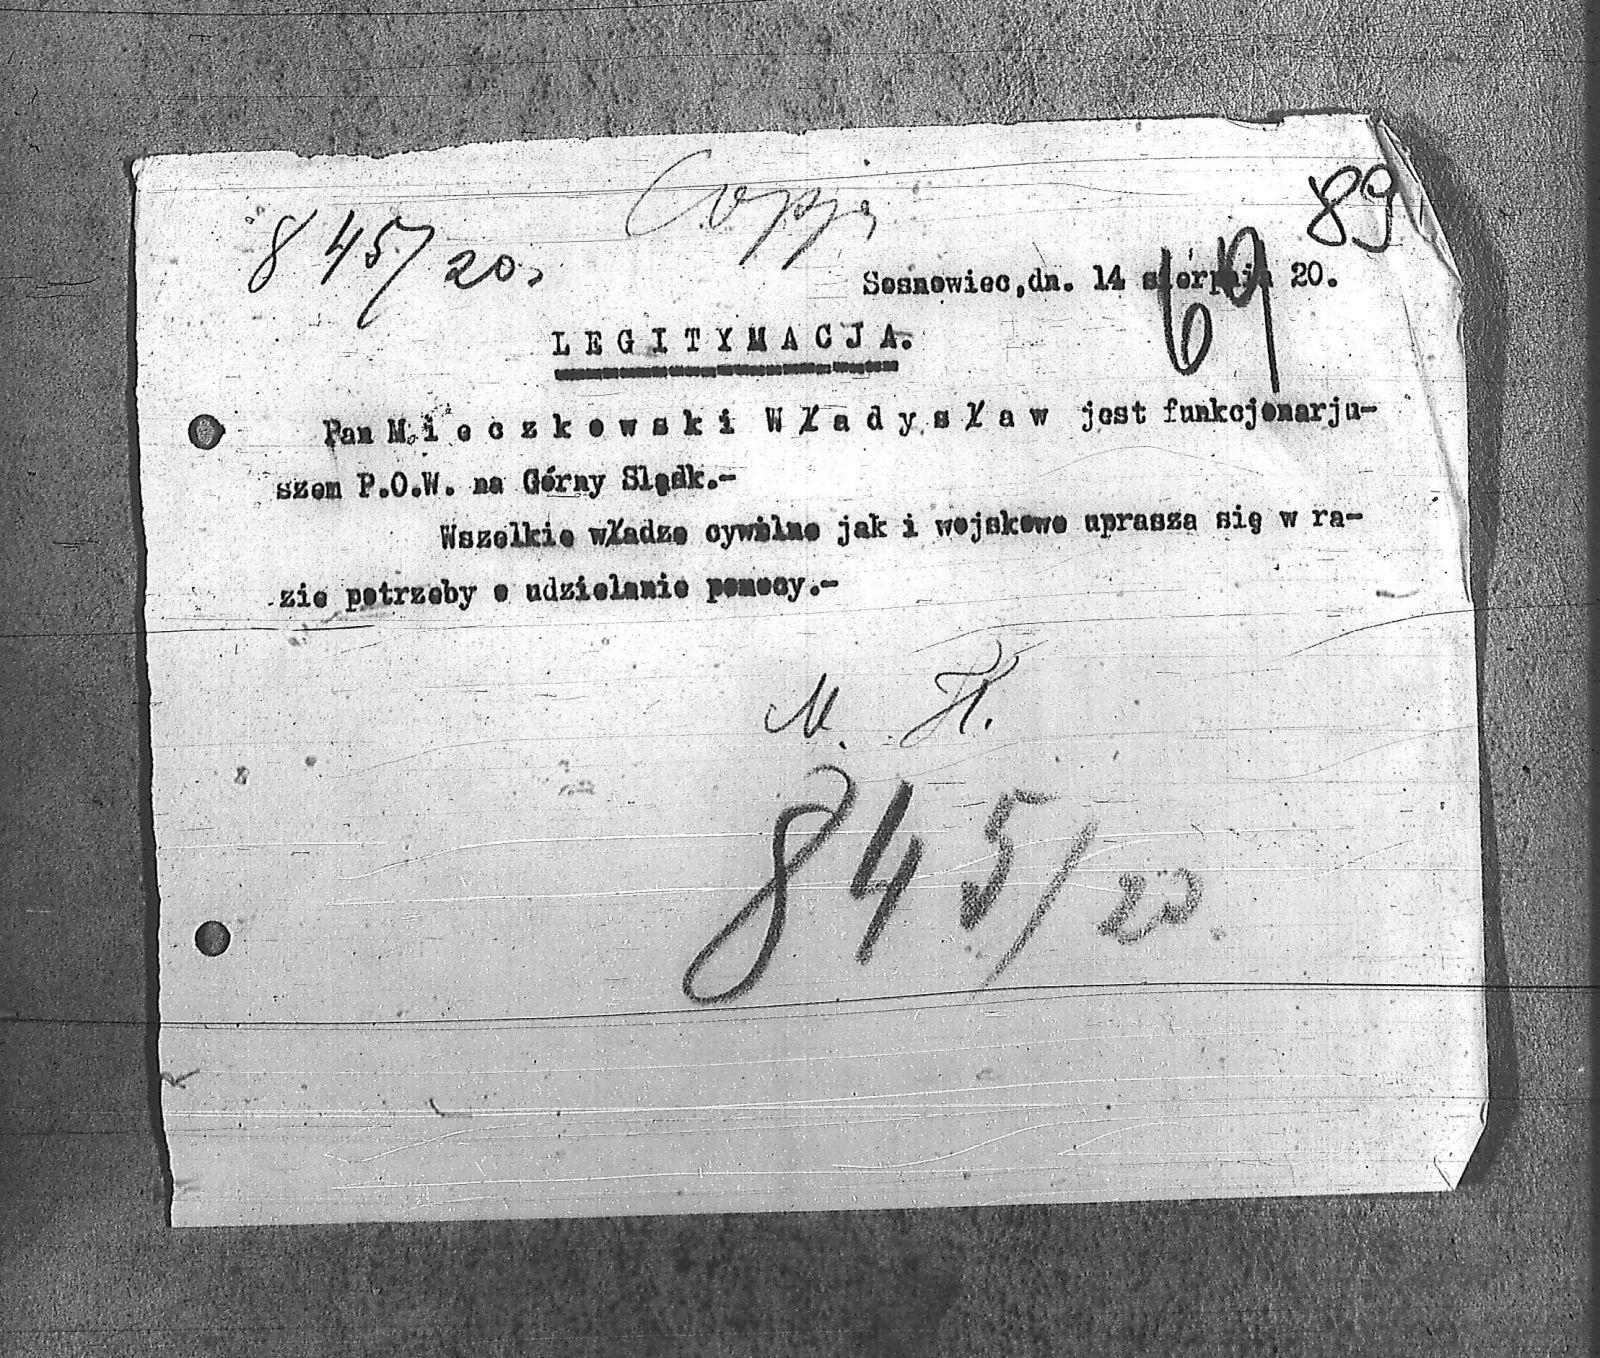 89
Copja
845/20.
69
Sosnowiec,dn. 14 sierpnia 20.
L E G I T Y M A C J A.
Pan M i e c z k o w s k i W ł a d y s ł a w jest funkcjonarju-
szem P.O.W. na Górny Sląsk.-
Wszelkie władze cywilne jak i wojskowe uprasza się w ra-
zie potrzeby o udzielanie pomocy.-
845/20.